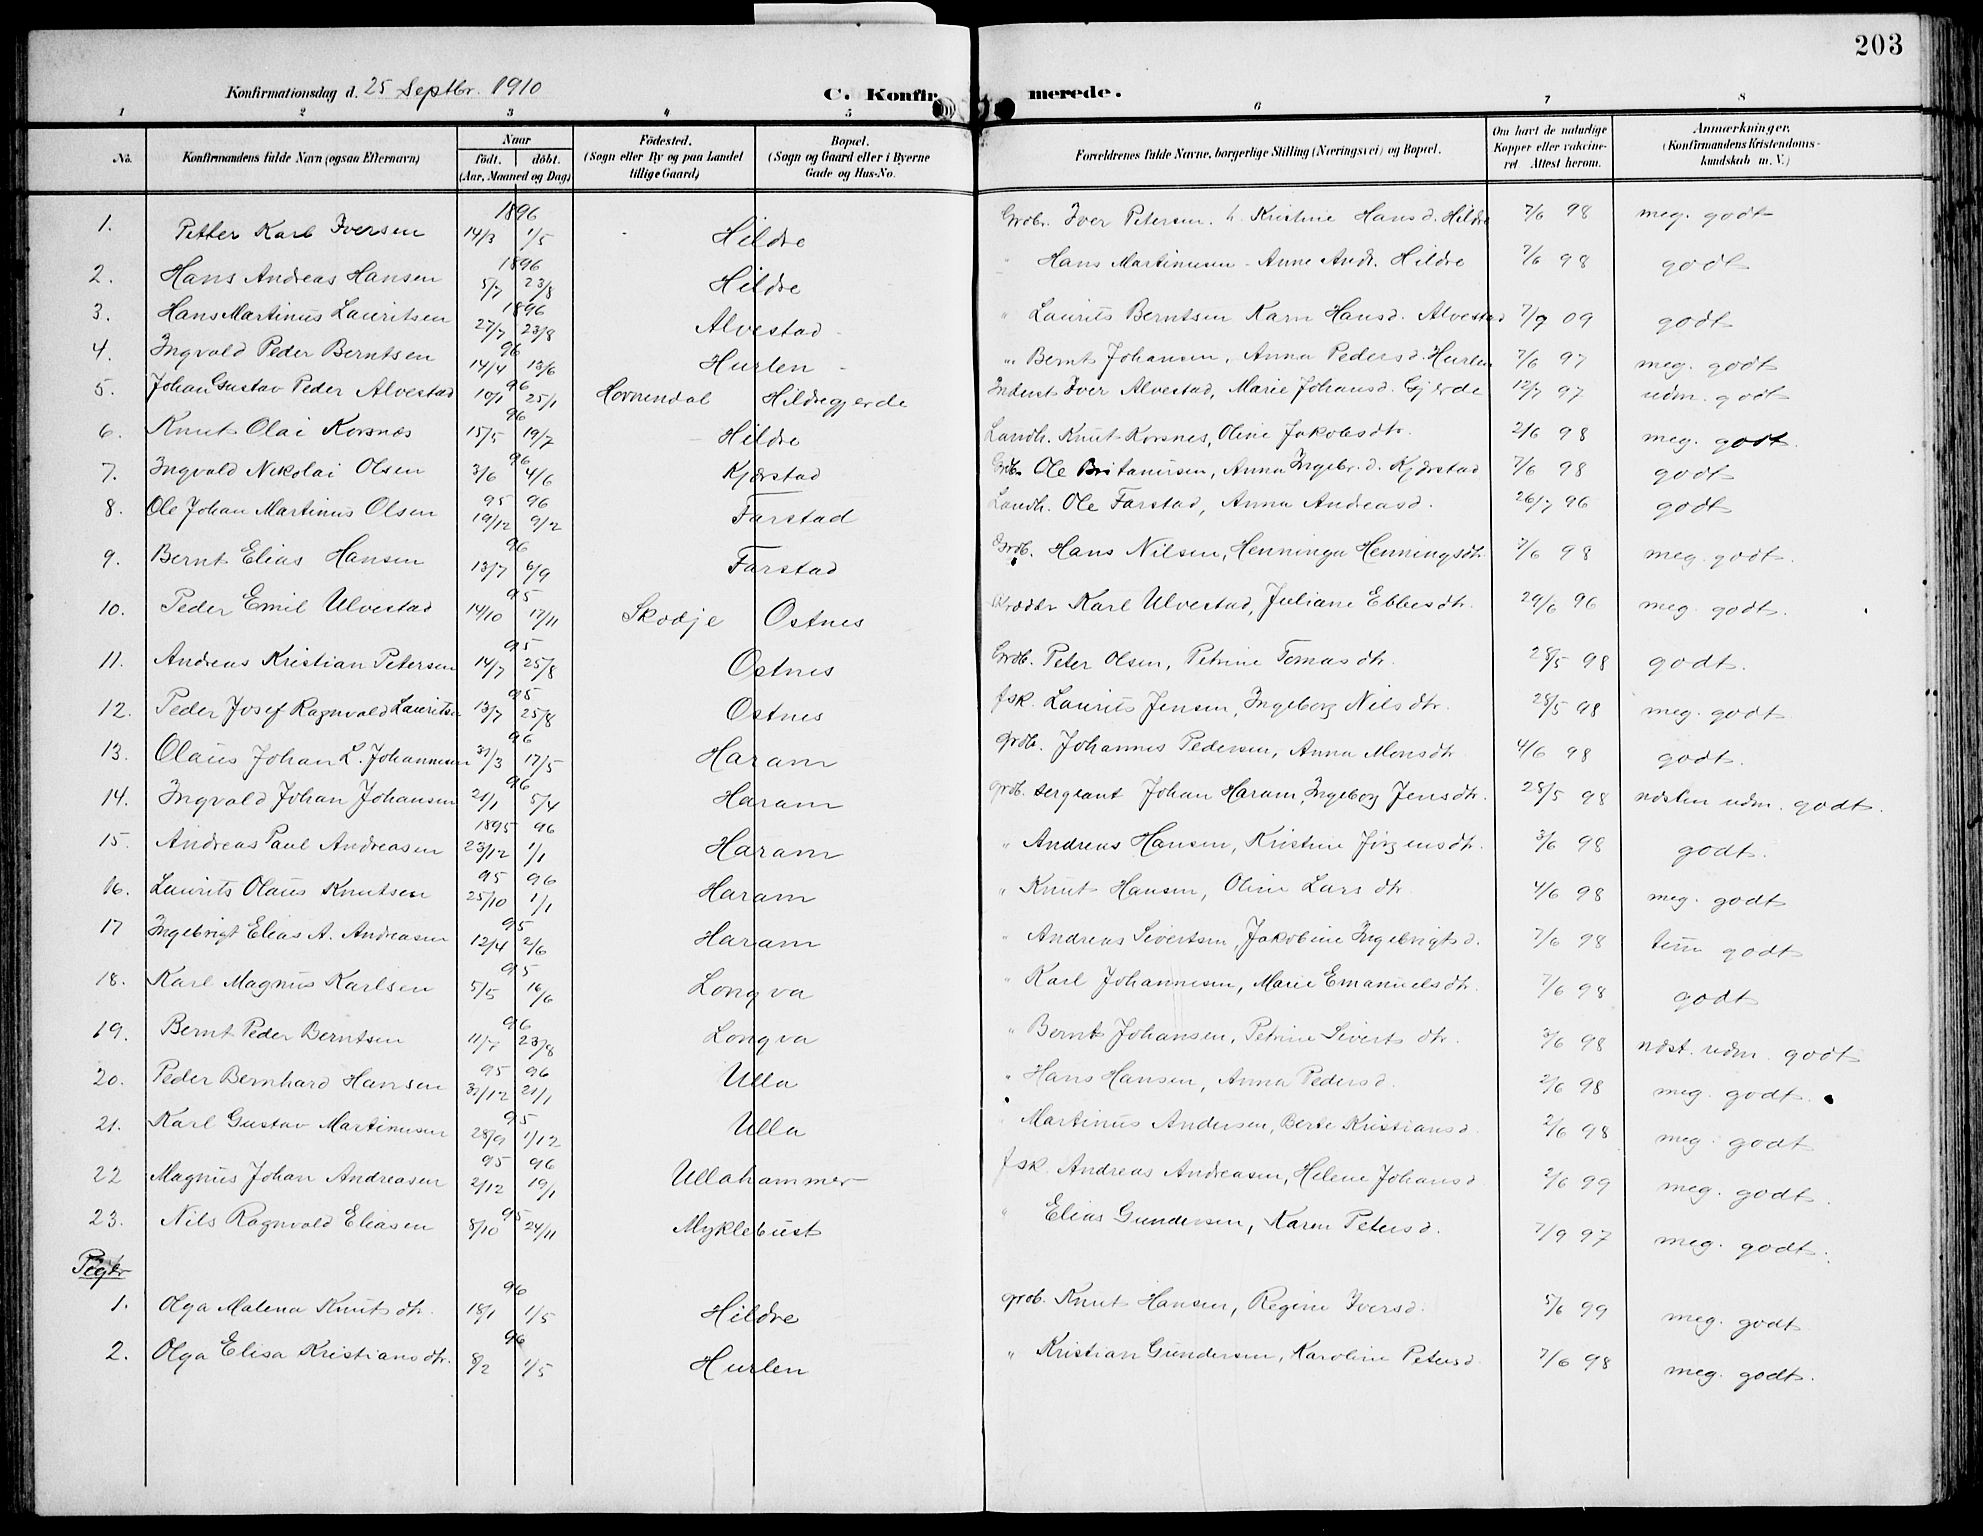 203
Konfirmationsdag d. 25 Septbr. 1910 C. Konfirmerede.
1 2 3 4 5 6 7 8
No. Konfirmandens fulde Navn (ogsaa Efternavn) Naar født. døbt. (Aar, Maaned og Dag) Fødested. (Sogn eller By og paa Landet tillige Gaard) Bopæl. (Sogn og Gaard eller i Byerne Gade og Hus-No. Forældrenes fulde Navne, borgerlige Stilling (Næringsvei) og Bopæl. Om havt de naturlige Kopper eller vakcineret. Attest herom. Anmærkninger. (Konfirmandens Kristendomskundskab m. V.)
1. Petter Karl Iversen 1896 14/3 1/5 Hildre Grdb. Iver Petersen. h. Kristine Hansd. Hildre 7/6 98 meg. godt
2. Hans Andreas Hansen 1896 5/7 23/8 Hildre " Hans Martinusen - Anne Andr. Hildre 7/6 98 godt
3. Hans Martinus Lauritsen 1896 27/7 23/8 Alvestad " Laurits Berntsen Karn Hansd. Alvestad 7/9 09 godt
4. Ingvald Peder Berntsen 96 14/4 13/6 Hurlen " Bernt Johansen, Anna Pedersd. Hurlen 7/6 97 meg. godt
5. Johan Gustav Peder Alvestad 96 10/1 25/1 Hornindal Hildregjerde Indust Iver Alvestad, Marie Johansd. Gjerde 12/7 97 udm. godt
6. Knut Olai Korsnes 96 15/5 19/7 Hildre Landh. Knut Korsnes, Oline Jakobsdtr. 2/6 98 meg. godt.
7. Ingvald Nikolai Olsen 96 3/6 4/6 Kjærstad Grdb. Ole Britanusen, Anna Ingebr.d. Kjærstad 7/6 98 godt
8. Ole Johan Martinus Olsen 95 96 19/12 9/2 Farstad Landh. Ole Farstad, Anna Andreasd. 26/7 96 godt
9. Bernt Elias Hansen 96 13/7 6/9 Farstad Grdb. Hans Nilsen, Henninga Henningsdtr. 7/6 98 meg. godt.
10. Peder Emil Ulvestad 95 14/10 17/11 Skodje Ostnes Karl Ulvestad, Juliane Ebbesdtr. 29/6 96 meg. godt.
11. Andreas Kristian Petersen 95 14/7 25/8 Ostnes Grdb. Peter Olsen, Petrine Tomasdtr. 28/5 98 godt.
12. Peder Josef Ragnvald Lauritsen 95 13/7 25/8 Ostnes fsk. Laurits Jensen, Ingeborg Nilsdtr. 28/5 98 meg. godt
13. Olaus Johan L. Johannesen 96 31/3 17/5 Haram grdb. Johannes Pedersen, Anna Monsdtr. 4/6 98 godt.
14. Ingvald Johan Johansen 96 21/1 5/4 Haram grdb. sergeant Johan Haram, Ingeborg Jensdtr. 28/5 98 næsten udm. godt.
15. Andreas Paul Andreasen 1895 96 23/12 1/1 Haram " Andreas Hansen, Kristine Jørgensdtr. 3/6 98 godt.
16. Laurits Olaus Knutsen 95 96 25/10 1/1 Haram " Knut Hansen, Oline Larsdtr. 4/6 98 meg. godt
17 Ingebrigt Elias A. Andreasen 95 12/4 2/6 Haram " Andreas Sivertsen, Jakobine Ingebrigtsd. 7/6 98 godt
18. Karl Magnus Karlsen 95 5/5 16/6 Longva " Karl Johannesen, Marie Emanuelsdtr. 7/6 98 godt
19. Bernt Peder Berntsen 96 11/7 23/8 Longva " Bernt Johansen, Petrine Sivertsdtr. 3/6 98 næst. udm. godt
20. Peder Bernhard Hansen 95 96 31/12 21/1 Ulla " Hans Hansen, Anna Pedersd. 2/6 98 meg. godt.
21. Karl Gustav Martinusen 95 28/9 1/12 Ulla " Martinus Andersen, Berte Kristiansd. 2/6 98 meg. godt
22 Magnus Johan Andreasen 95 96 2/12 19/1 Ullahammer fsk. Andreas Andreasen, Helene Johansd. 2/6 99 meg. godt.
23. Nils Ragnvald Eliasen 95 8/10 24/11 Myklebust " Elias Gundersen, Karen Petersd. 7/9 97 meg. godt.
Piger
1. Olga Malena Knutsdtr. 96 18/1 1/5 Hildre grdb. Knut Hansen, Regine Iversd. 5/6 99 meg. godt
2. Olga Elisa Kristiansdtr. 96 8/2 1/5 Hurlen " Kristian Gundersen, Karoline Petersd. 7/6 98 meg. godt.